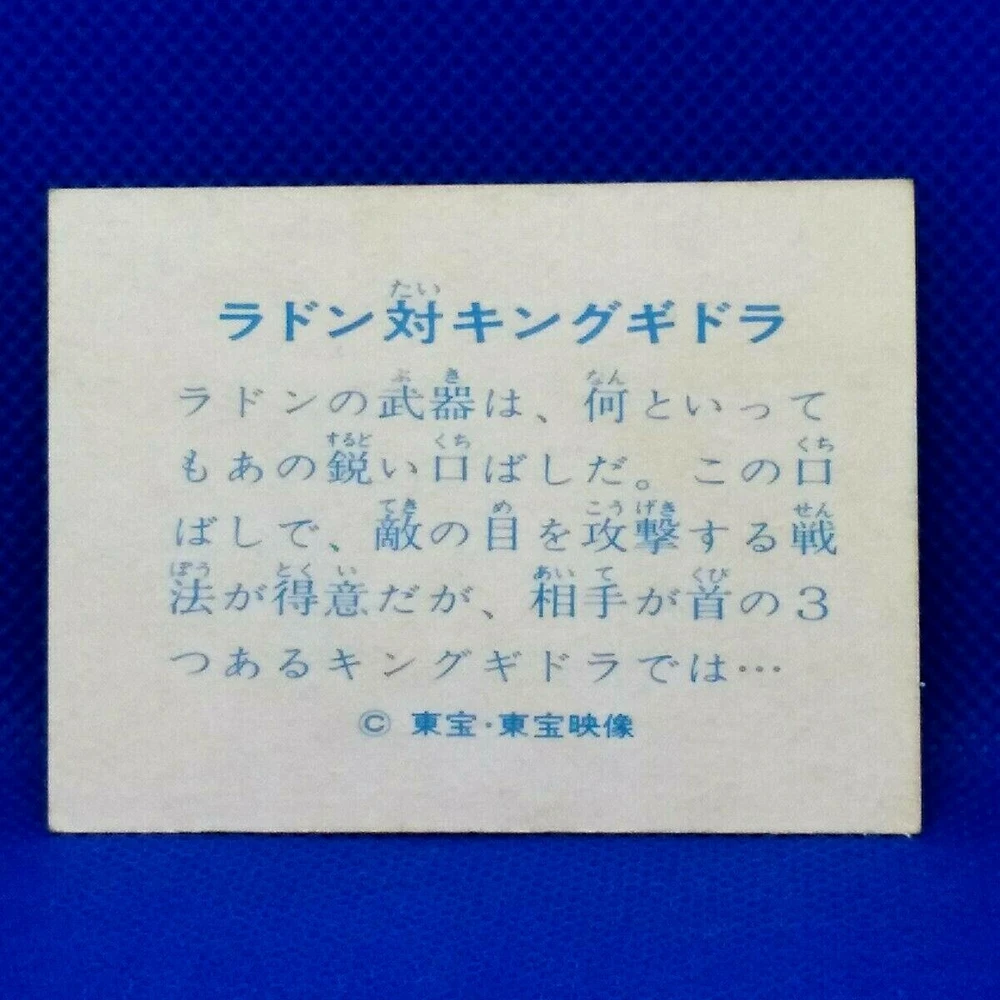 ラドン対キングギドラ
ラドンの武器は、何といって
もあの鋭い口ばしだ。この口
ばしで、敵の目を攻撃する戦
法が得意だが、相手が首の3
つあるキングギドラでは…
© 東宝・東宝映像